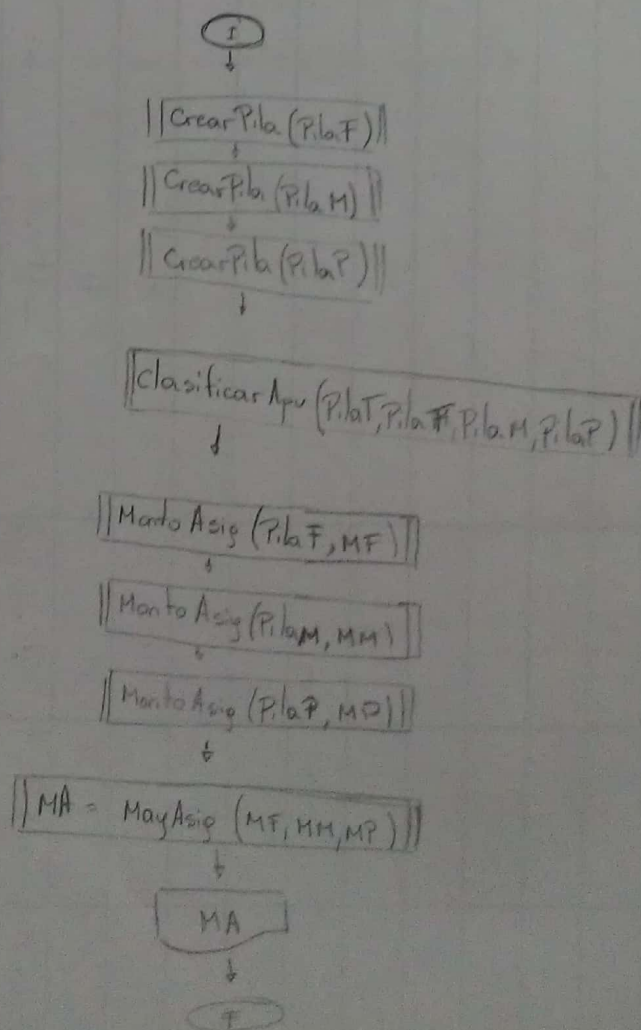 I
CrearPila (PilaF)
CrearPila (PilaM)
CrearPila (PilaP)
Clasificar Apu (PilaT, PilaF, PilaM, PilaP)
Monto Asig (PilaF, MF)
Monto Asig (PilaM, MM)
Monto Asig (PilaP, MP)
MA = MayAsig (MF, MM, MP)
MA
F